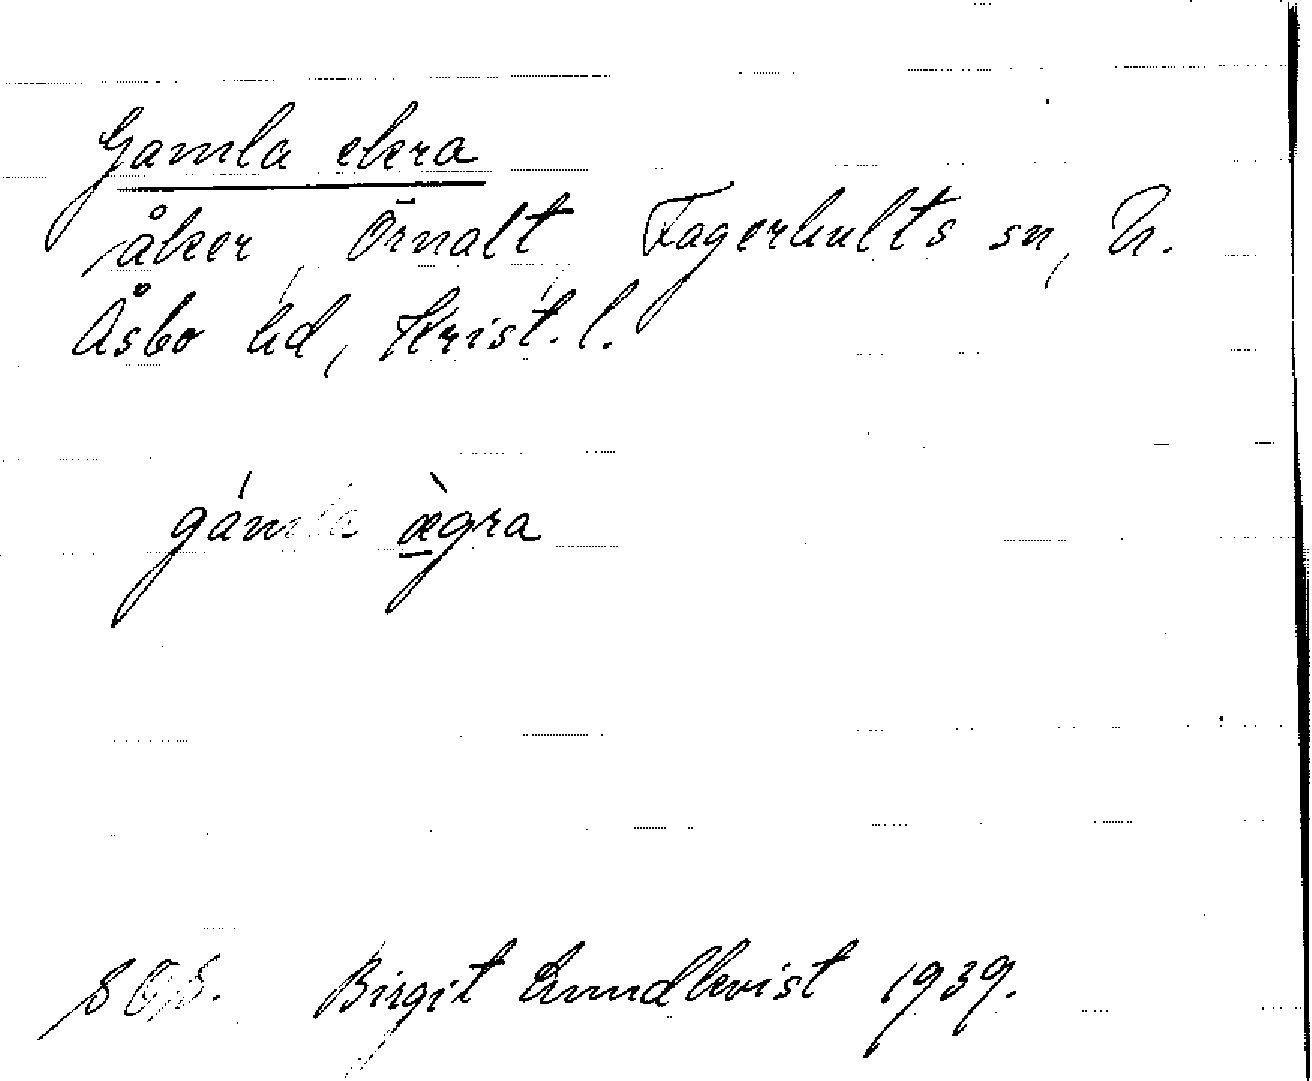 Gamla ekra
åker, Örnalt, Fagerhults sn, N.
Åsbo hd, Krist. l.
gámla æ̱̀gra
Birgit Lundkvist 1939.